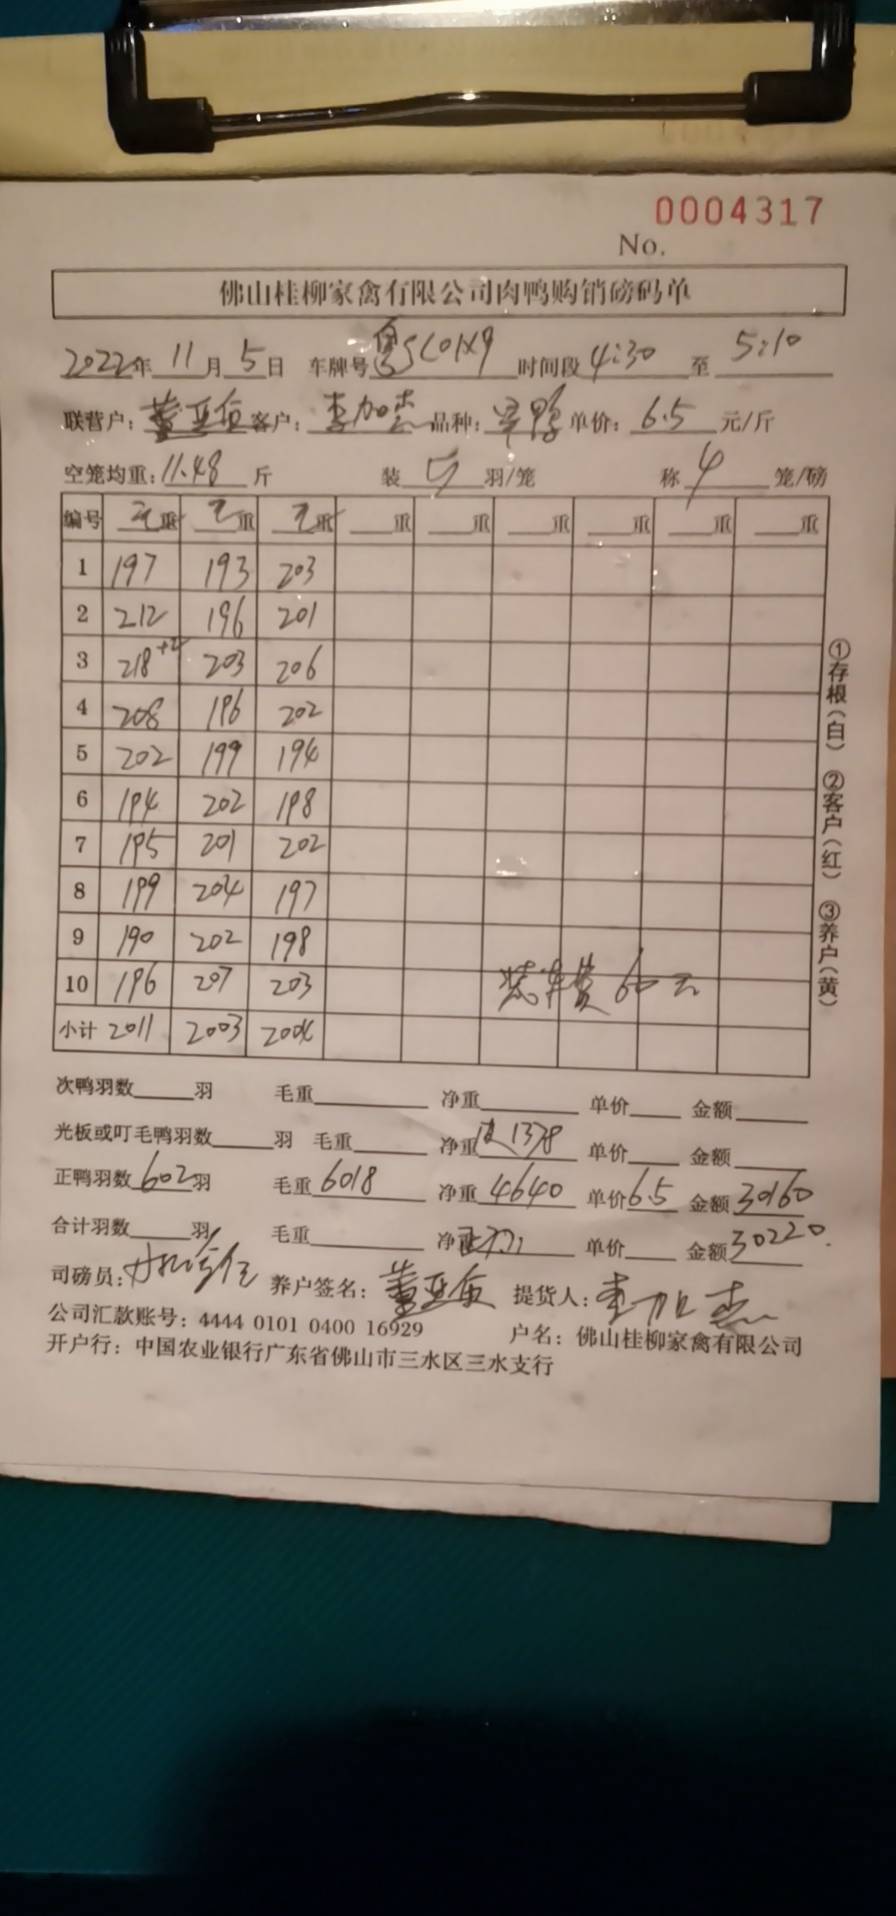 0004317
No.
佛山桂柳家禽有限公司肉鸭购销磅码单
2022年 11月 5日 车牌号 粤SC01X9 时间段 4:30 至 5:10
联营户： 客户：李加杰 品种： 单价：6.5 元/斤
空笼均重：11.48 斤 装 5 羽/笼 称 4 笼/磅
编号 毛重 毛重 毛重 重 重 重 重 重 重
1 197 193 203
2 212 196 201
3 218+2 203 206
4 208 196 202
5 202 199 194
6 194 202 198
7 195 201 202
8 199 204 197
9 190 202 198
10 196 207 203 装车费 60元
小计 2011 2003 2004
次鸭羽数 羽 毛重 净重 单价 金额
光板或叮毛鸭羽数 羽 毛重 净重 1378 单价 金额
正鸭羽数 602 羽 毛重 6018 净重 4640 单价 6.5 金额 30160
合计羽数 羽 毛重 净重 单价 金额 30220.
司磅员： 养户签名： 提货人：李加杰
公司汇款账号：4444 0101 0400 16929 户名：佛山桂柳家禽有限公司
开户行：中国农业银行广东省佛山市三水区三水支行
①存根(白) ②客户(红) ③养户(黄)